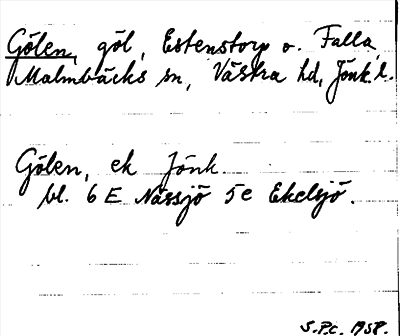 Gölen, göl, Estenstorp o. Falla
Malmbäcks sn, Västra hd, Jönk. l.
Gölen, ek Jönk.
bl. 6 E Nässjö 5 e Ekelsjö.
S.P.C. 1958.